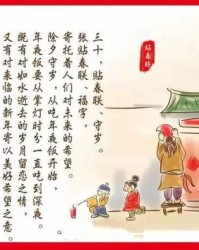 三十，贴春联、守岁。
张贴春联、福字，
寄托着人们对未来的希望。
除夕守岁，从吃年夜饭开始，
年夜饭要从掌灯时分一直吃到深夜。
既有对如水逝去的岁月留恋之情，
又有对来临的新年寄以美好希望之意。
贴春联